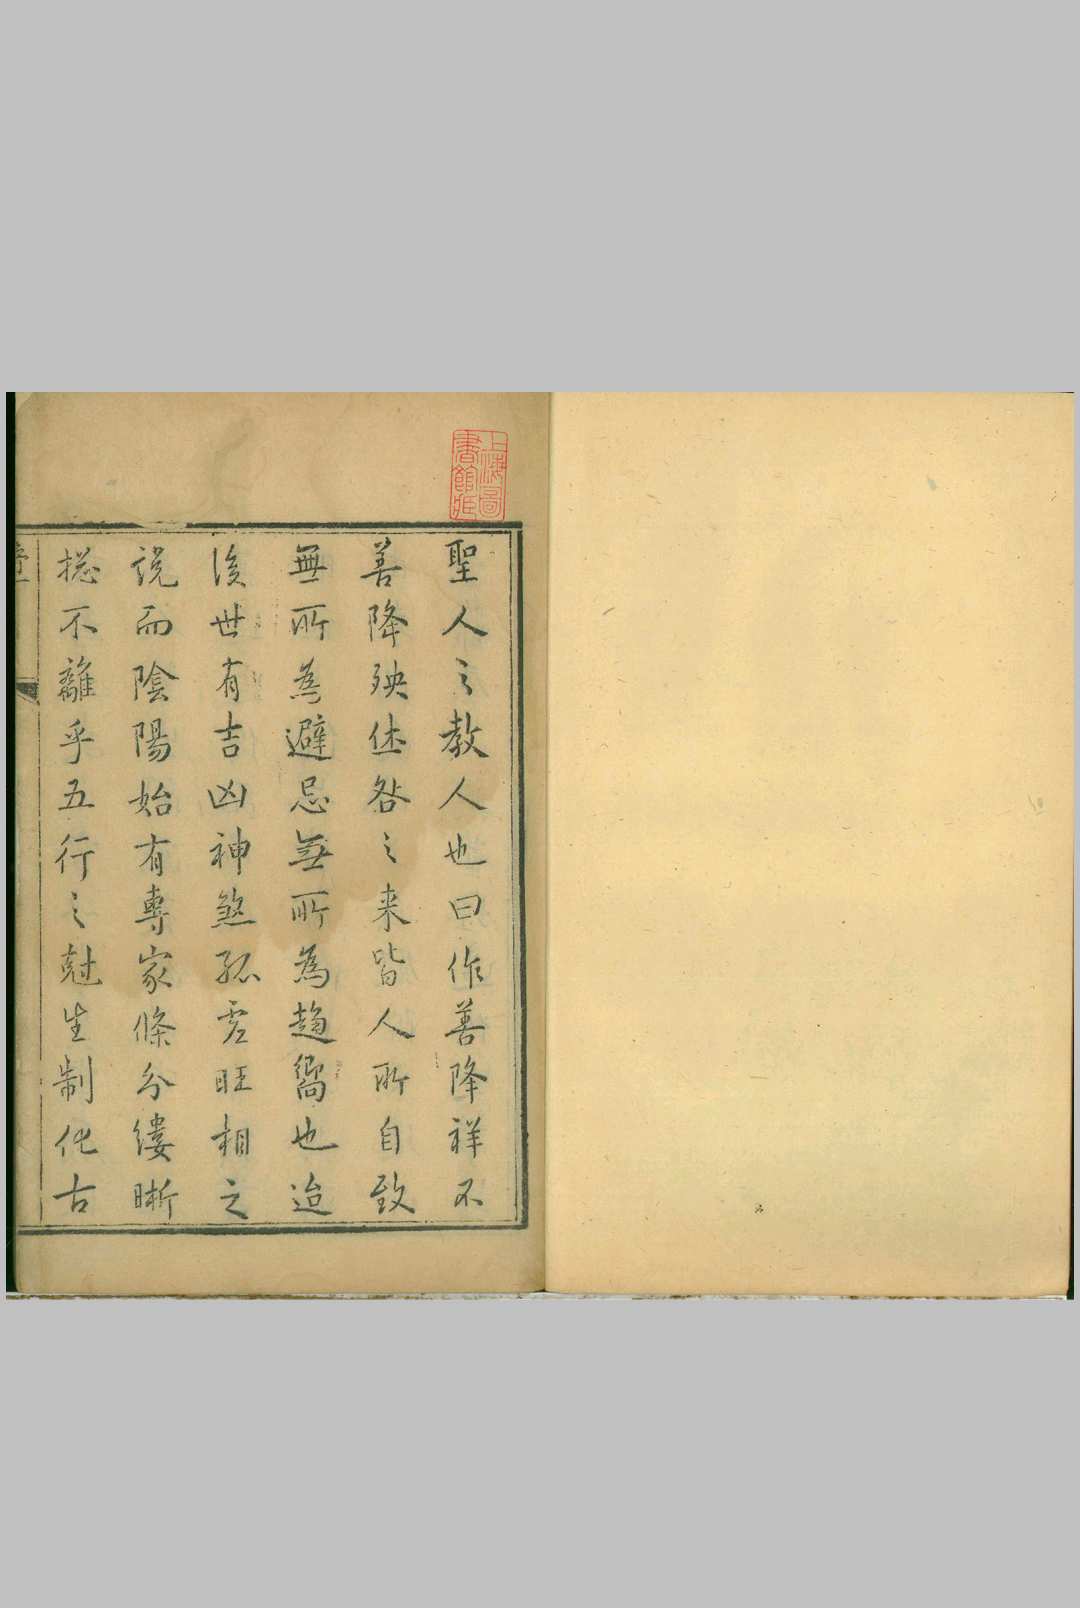 聖人之教人也曰作善降祥不
善降殃休咎之来皆人所自致
無所為避忌無所為趨嚮也迨
後世有吉凶神煞孤虛旺相之
説而陰陽始有專家條分縷晰
捴不離乎五行之尅生制化古
上海圖
書館藏